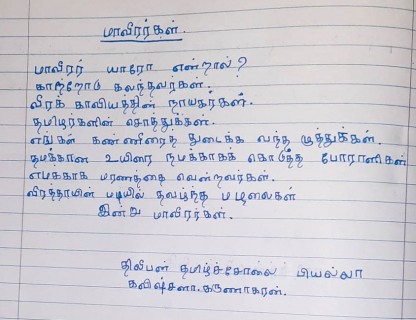 மாவீரர்கள்.
மாவீரர் யாரோ என்றால்?
காற்றோடு கலந்தவர்கள்.
வீரக் காவியத்தின் நாயகர்கள்.
தமிழர்களின் சொத்துக்கள்.
எங்கள் கண்ணீரைத் துடைக்க வந்த முத்துக்கள்.
தமக்கான உயிரை நமக்காகக் கொடுத்த போராளிகள்
எமக்காக மரணத்தை வென்றவர்கள்.
வீரத்தாயின் மடியில் தவழ்ந்த மழலைகள்
மாவீரர்கள்.
திலீபன் தமிழ்ச்சோலை பியல்லா
கவிஷ்சனா. கருணாகரன்.